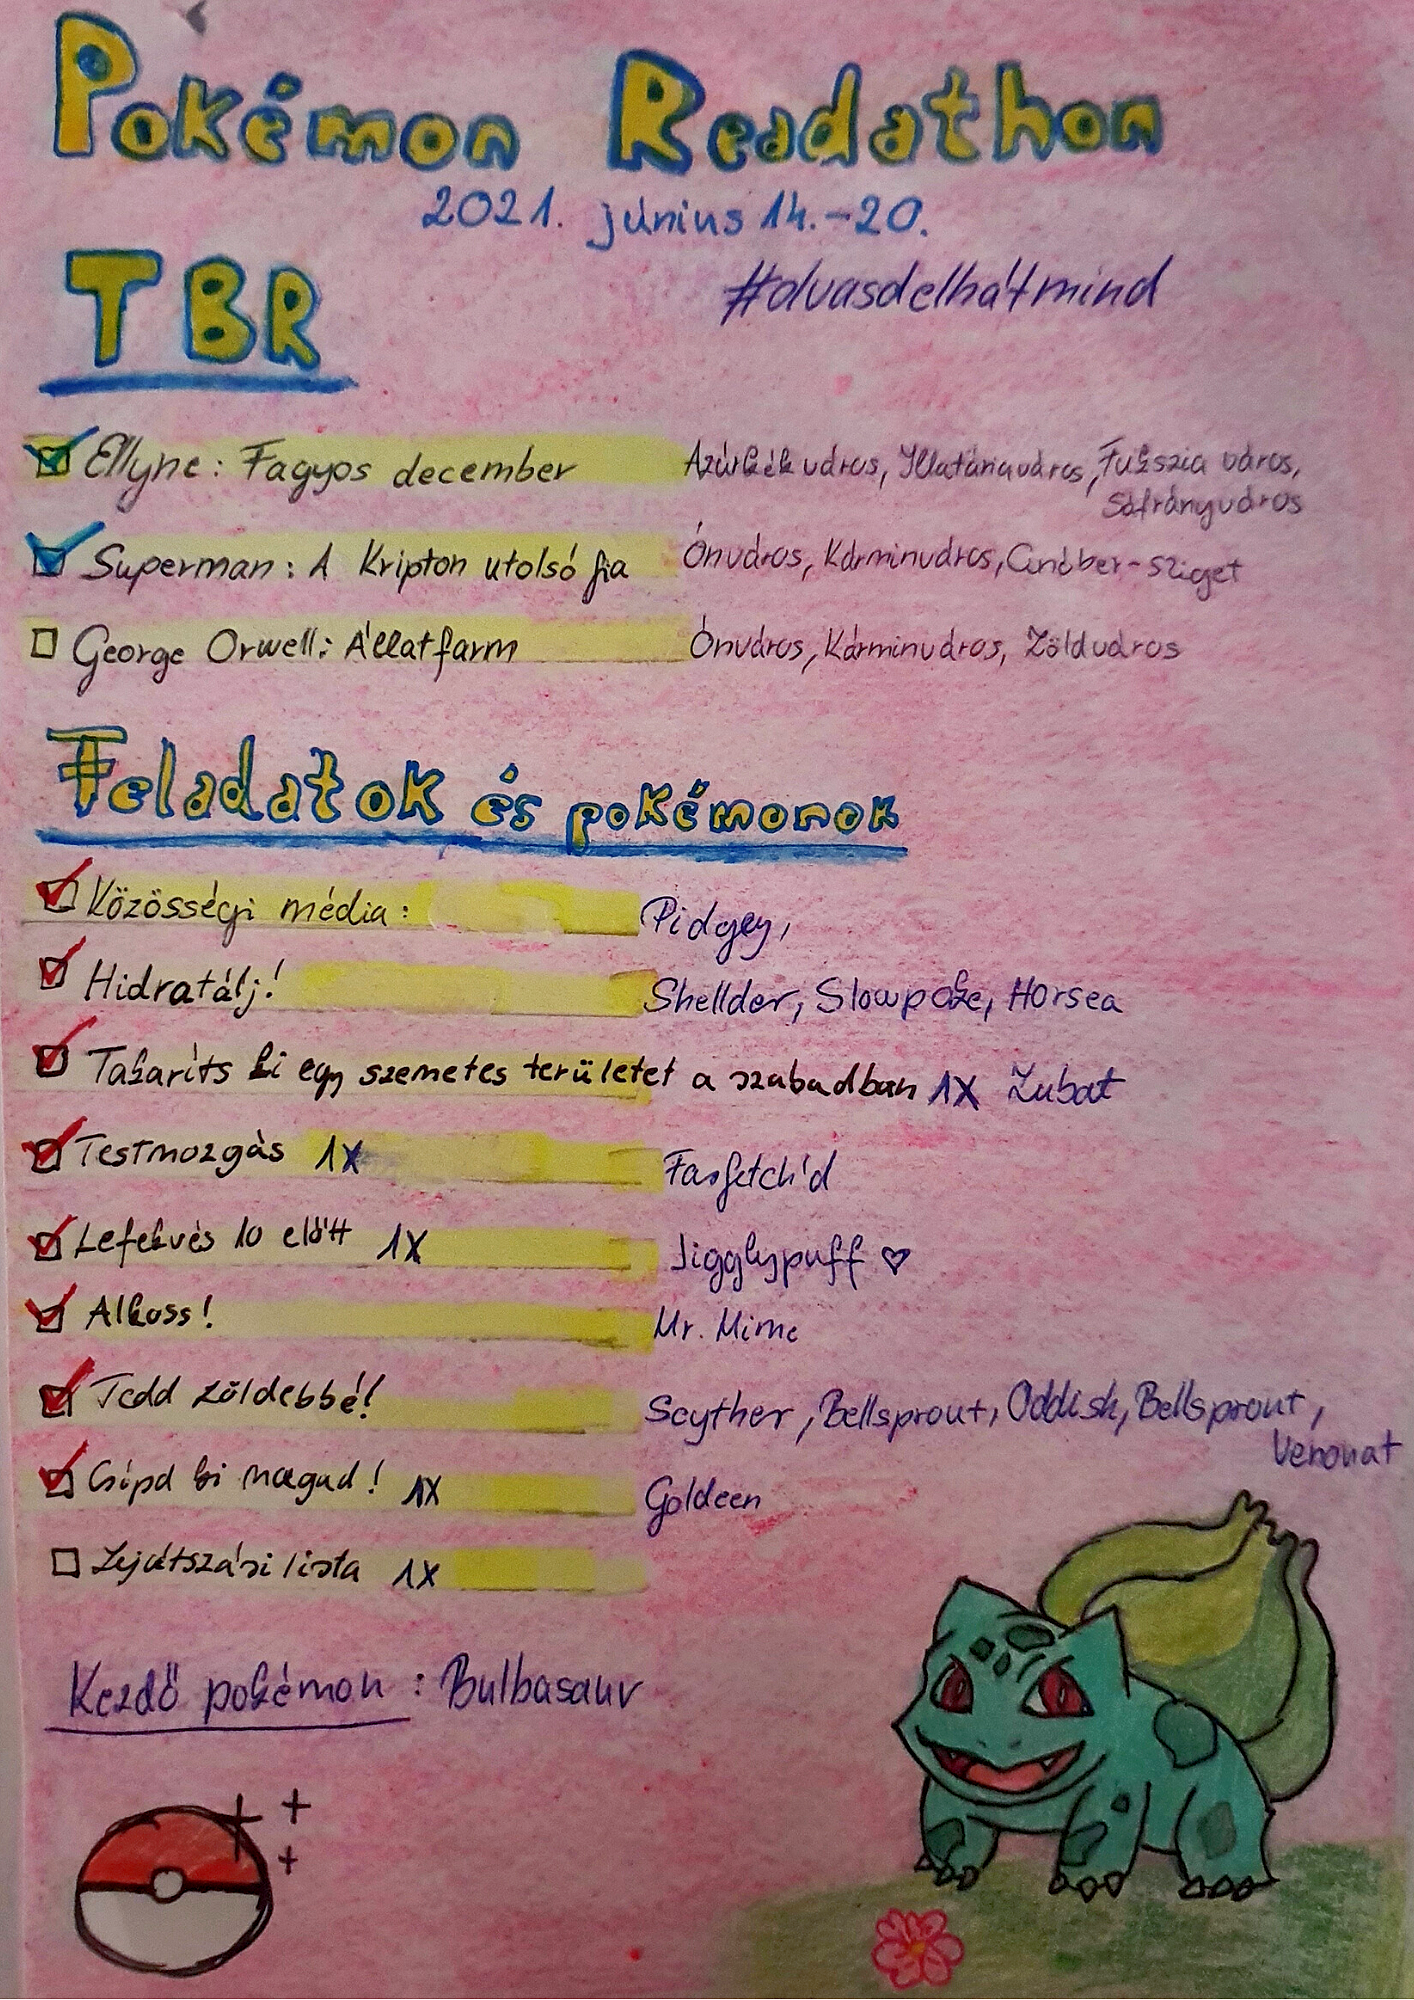 Pokémon Readathon
2021. június 14.-20.
TBR
#olvasdelhátmind
Ellyne: Fagyos december Azúrkék város, Illatáriaváros, Fukszia város,
Sáfrányváros
Superman: A Kripton utolsó fia Ónváros, Kárminváros, Cinóber-sziget
George Orwell: Állatfarm Ónváros, Kárminváros, Zöldváros
Feladatok és pokémonok
Közösségi média: Pidgey,
Hidratálj! Shellder, Slowpoke, Horsea
Takaríts ki egy szemetes területet a szabadban 1X Zubat
Testmozgás 1X Farfetch'd
Lefekvés 10 előtt 1X Jigglypuff ♡
Alkoss! Mr. Mime
Tedd zöldebbé! Scyther, Bellsprout, Oddish, Bellsprout,
Venonat
Csípd ki magad! 1X Goldeen
Lejátszási lista 1X
Kezdő pokémon: Bulbasaur